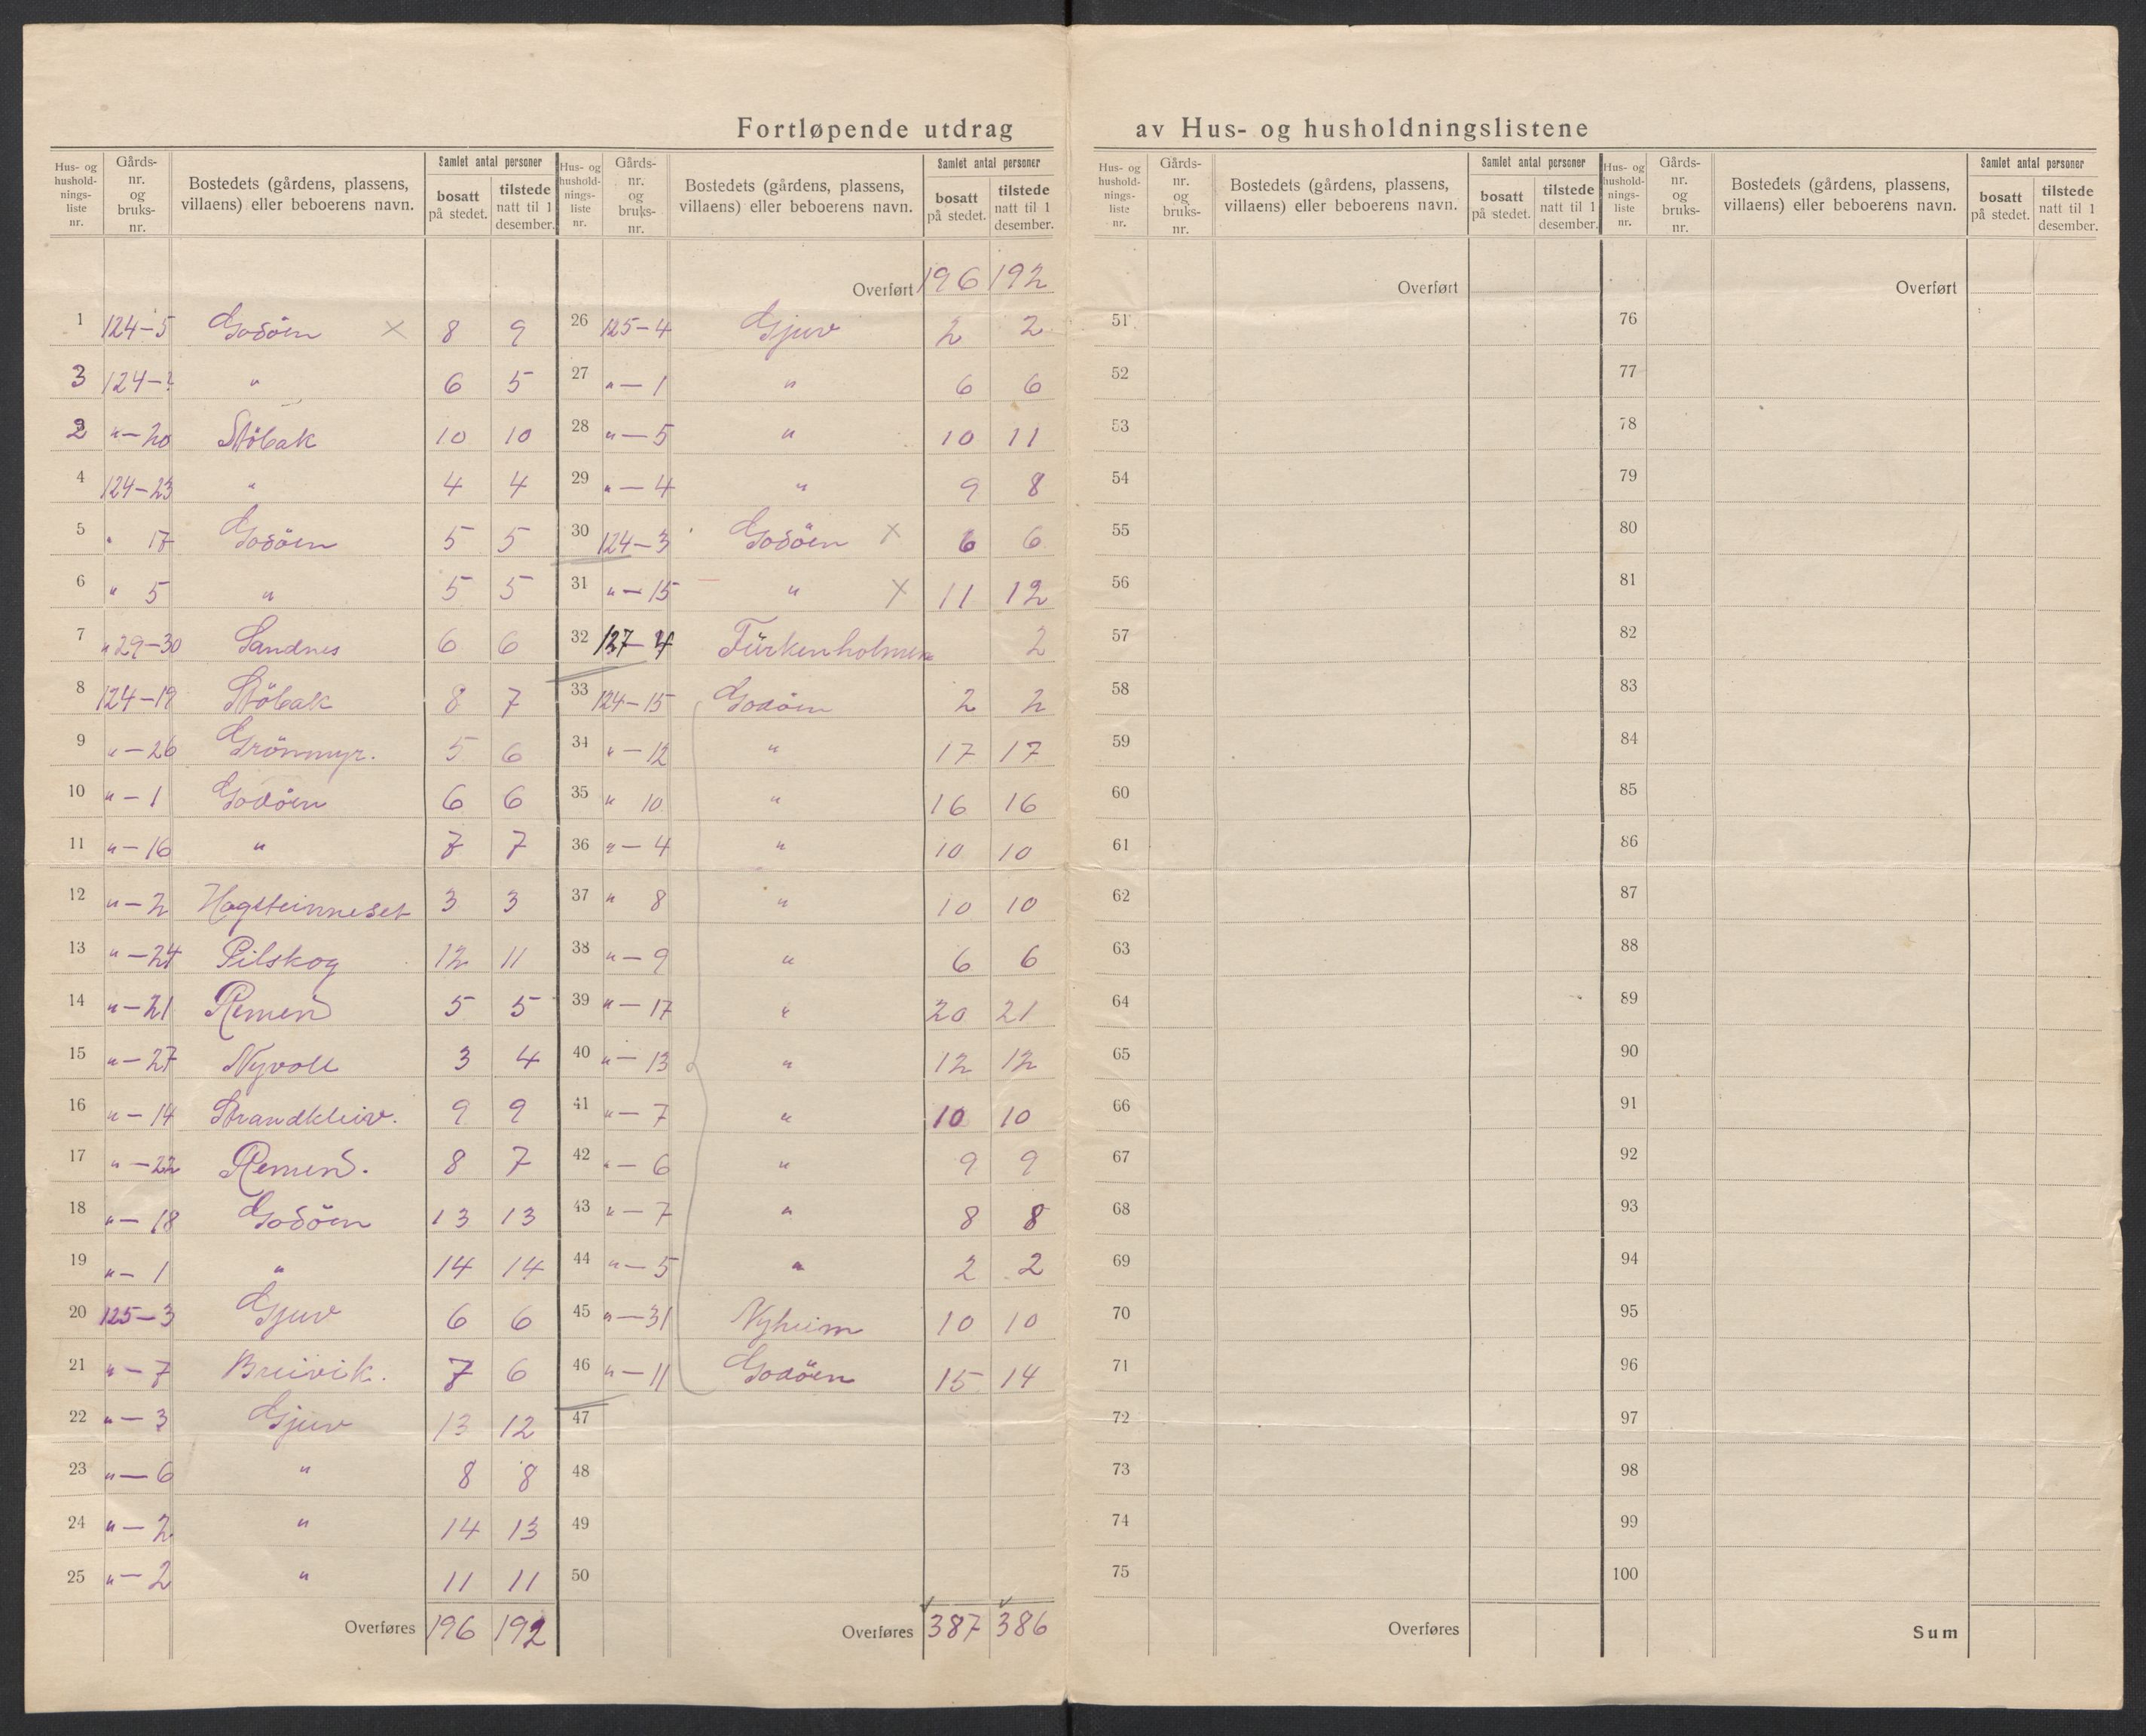 Fortløpende utdrag av Hus- og husholdningslistene
Hus- og hushold-nings-liste nr. | Gårds-nr. og bruks-nr. | Bostedets (gårdens, plassens, villaens) eller beboerens navn. | Samlet antal personer | bosatt på stedet. | tilstede natt til 1 desember.
1 124–5 Godöen × 8 9
3 124– " 6 5
2 "–20 Stöbak 10 10
4 124–23 " 4 4
5 " 17 Godöen 5 5
6 " 5 " 5 5
7 " 29–30 Sandnes 6 6
8 124–19 Stöbak 8 7
9 "–26 Grönmyr. 5 6
10 "–1 Godöen 6 6
11 "–16 " 7 7
12 "–2 Hogsteinneset 3 3
13 "–24 Pilskog 12 11
14 "–21 Remen 5 5
15 "–27 Nyvoll 3 4
16 "–14 Strandkleiv. 9 9
17 "–22 Remen. 8 7
18 "–18 Godöen 13 13
19 "–1 " 14 14
20 125–3 Gjuv 6 6
21 "–7 Breivik. 7 6
22 "–3 Gjuv 13 12
23 "–6 " 8 8
24 "–2 " 14 13
25 "–2 " 11 11
Overføres 196 192
Hus- og hushold-nings-liste nr. | Gårds-nr. og bruks-nr. | Bostedets (gårdens, plassens, villaens) eller beboerens navn. | Samlet antal personer | bosatt på stedet. | tilstede natt til 1 desember.
Overført 196 192
26 125–4 Gjuv 2 2
27 "–1 " 6 6
28 "–5 " 10 11
29 "–4 " 9 8
30 124–3 Godöen × 6 6
31 "–15 " × 11 12
32 127–4 Fürkenholmen 2
33 124–15 Godöen 2 2
34 "–12 " 17 17
35 " 10 " 16 16
36 "–4 " 10 10
37 " 8 " 10 10
38 "–9 " 6 6
39 "–17 " 20 21
40 "–13 " 12 12
41 "–7 " 10 10
42 "–6 " 9 9
43 "–7 " 8 8
44 "–5 " 2 2
45 "–31 Nyheim 10 10
46 "–11 Godöen 15 14
47
48
49
50
Overføres 387 386
Hus- og hushold-nings-liste nr. | Gårds-nr. og bruks-nr. | Bostedets (gårdens, plassens, villaens) eller beboerens navn. | Samlet antal personer | bosatt på stedet. | tilstede natt til 1 desember.
Overført
51
52
53
54
55
56
57
58
59
60
61
62
63
64
65
66
67
68
69
70
71
72
73
74
75
Overføres
Hus- og hushold-nings-liste nr. | Gårds-nr. og bruks-nr. | Bostedets (gårdens, plassens, villaens) eller beboerens navn. | Samlet antal personer | bosatt på stedet. | tilstede natt til 1 desember.
Overført
76
77
78
79
80
81
82
83
84
85
86
87
88
89
90
91
92
93
94
95
96
97
98
99
100
Sum